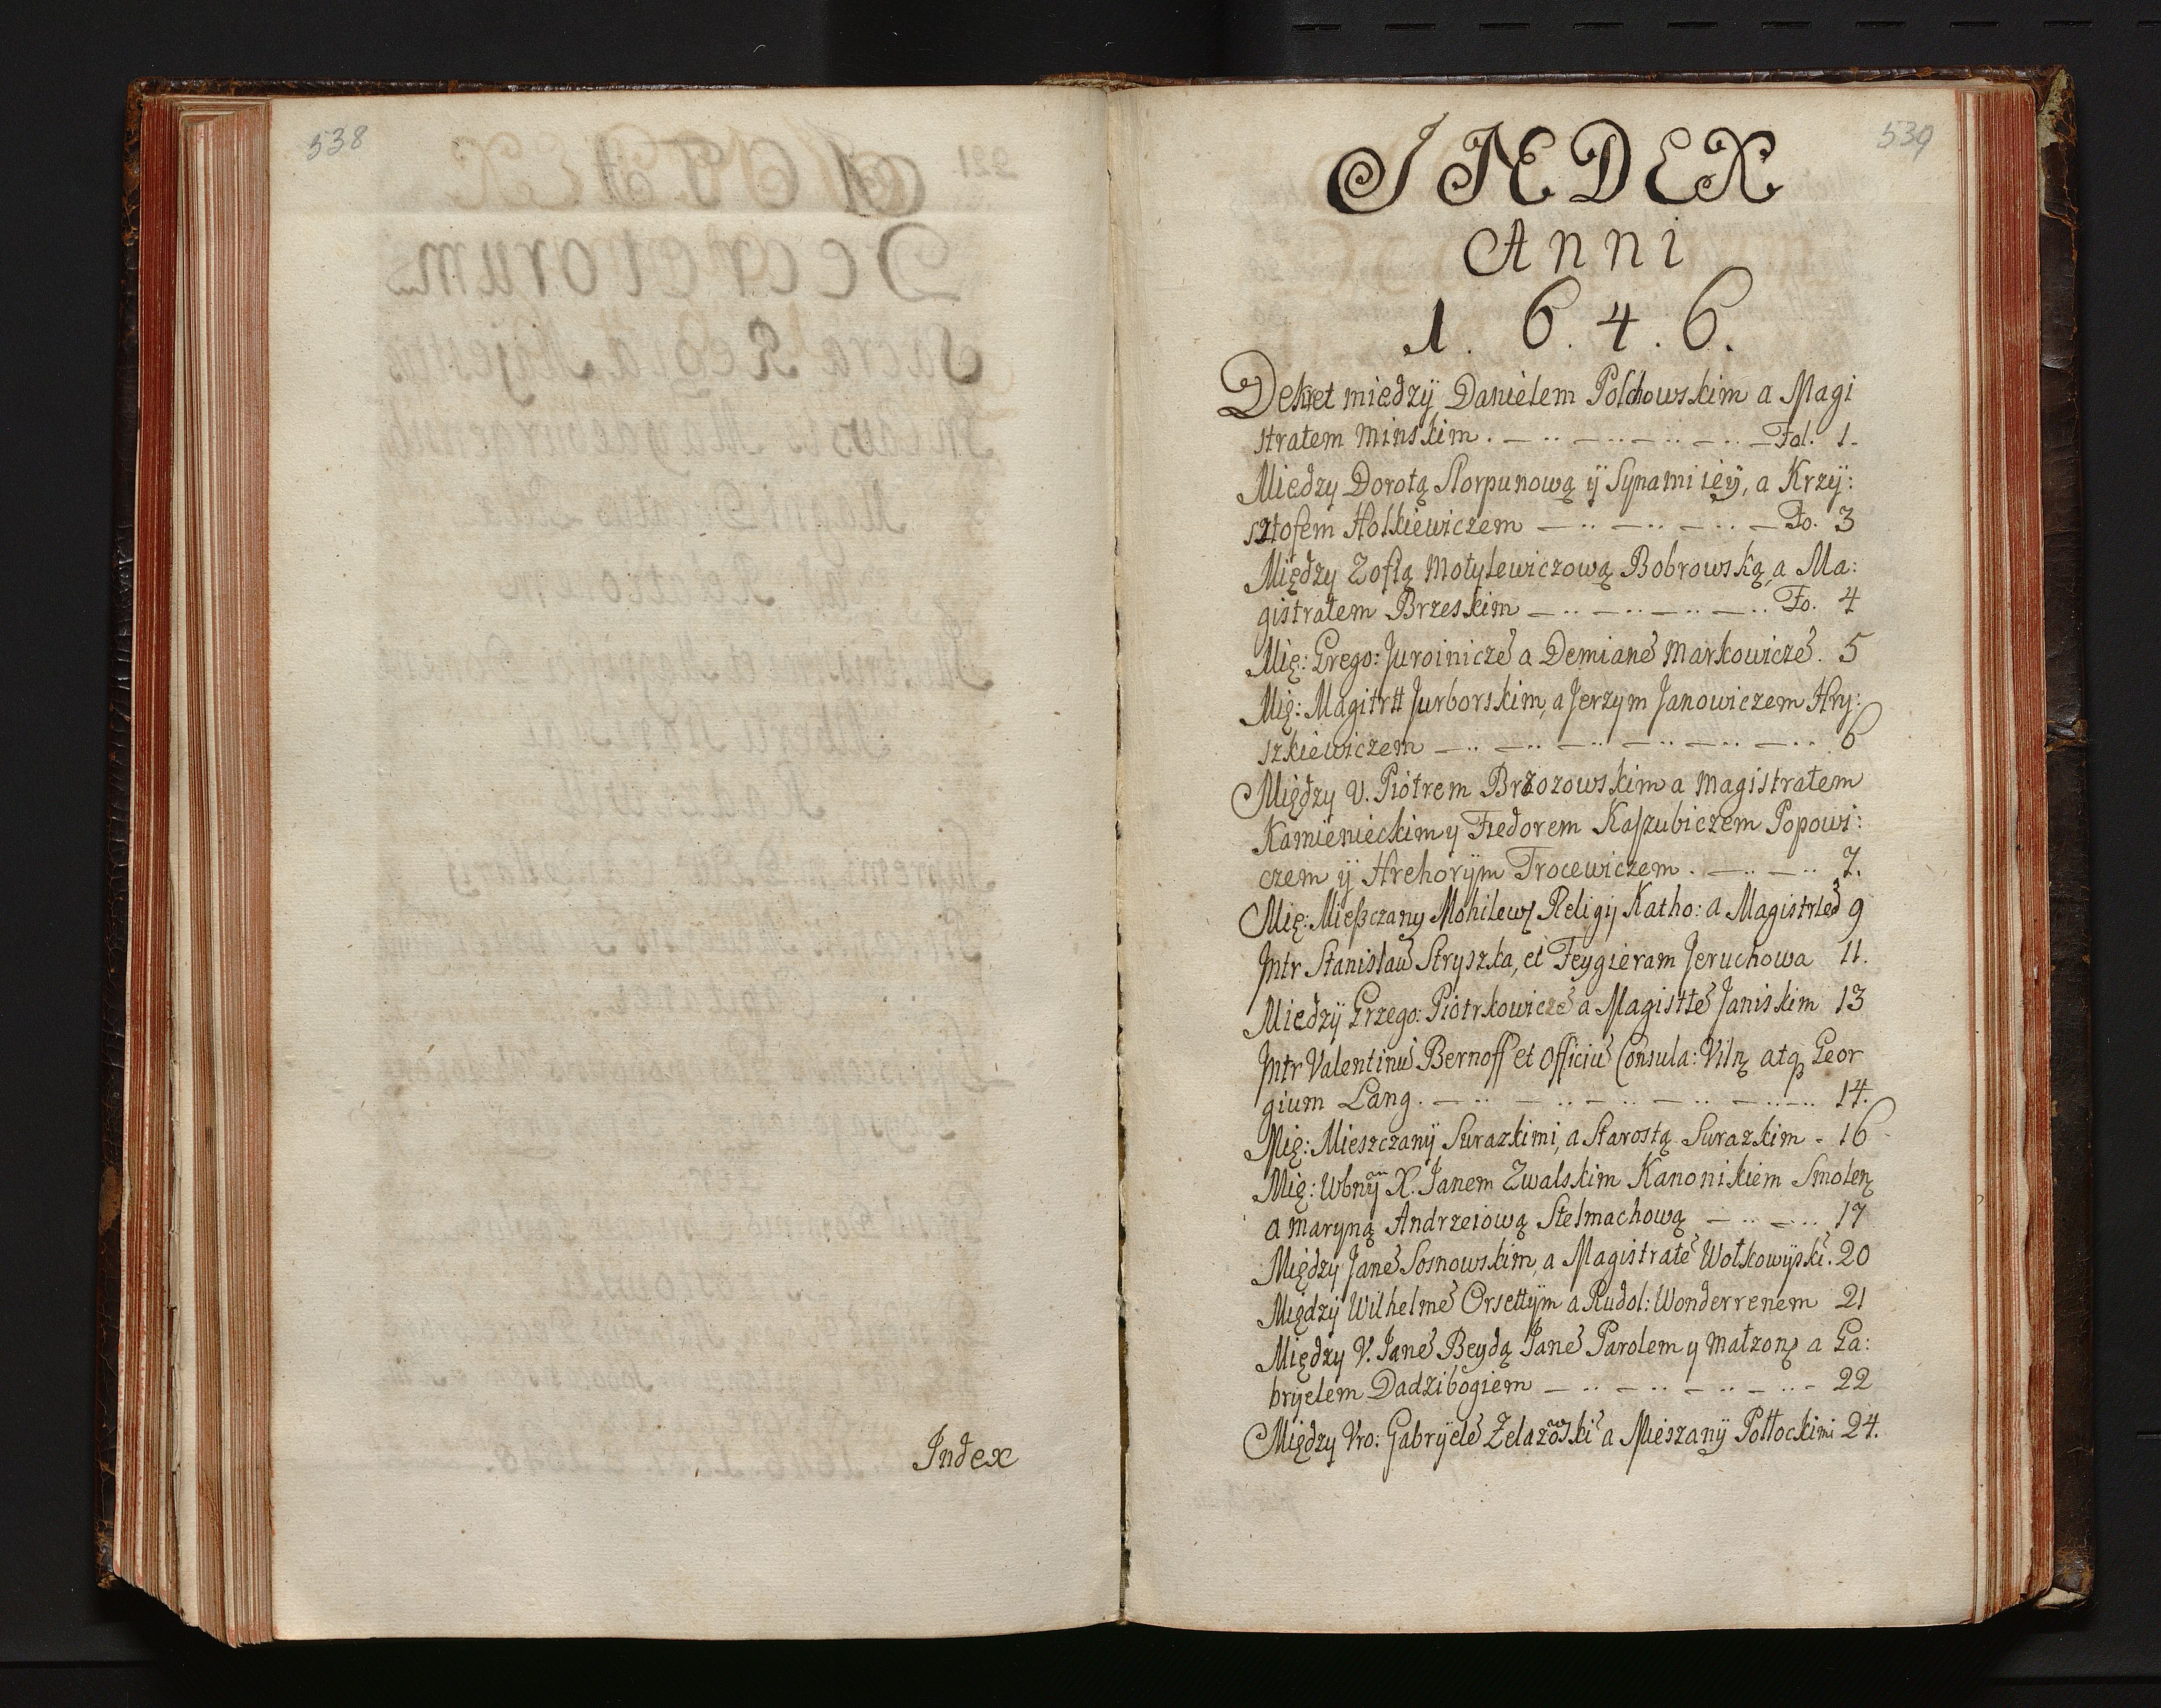 538
Index
539
INDEX
Anni
1. 6. 4. 6.
Dekret miedzÿ Danielem Polchowskim a Magi
stratem Minskim . — .. — .. — .. — .. — Fol. 1.
Miedzy Dorotą Korpunową ÿ Synami ieÿ, a Krzÿ:
sztofem Holkiewiczem — .. — .. — .. — Fo. 3
Między Zofią Motylewiczową Bobrowską, a Ma:
gistratem Brzeskim — .. — .. — .. — .. Fo. 4
Mię: Grego: Juroinicze a Demiane Markowicze. 5
Mię: Magitrtt Jurborskim, a Jerzym Janowiczem Hry:
szkiewiczem — .. — .. — .. — .. — .. — .. 6
Między V. Piotrem Brzozowskim a Magistratem
Kamienieckim y Fiedorem Kaszubiczem Popowi:
czem ÿ Hrehorÿm Trocewiczem . — .. — .. 7.
Mię: Mießczany Mohilew Religij Katho: a Magistrled 9
Intr Stanisław Stryszka, et Feygieram Jeruchowa 11.
Miedzÿ Grzego: Piotrkowicze a Magistte Janiskim 13
Intr Valentinu Bernoff et Officiu Consula: Viln atq Geor
gium Lang . — .. — .. — .. — .. — .. — .. 14.
Mię: Mieszczanÿ Surazkimi, a Starostą Surazkim - 16
Mię: Wbnÿ X. Janem Zwalskim Kanonikiem Smolen
a Maryną Andrzeiową Stelmachową — .. — .. 17
Między Jane Sosnowskim, a Magistrate Wołkowÿski. 20
Międzÿ Wilhelme Orsettÿm a Rudol: Wonderrenem 21
Między V. Jane Beydą Jane Parolem y Małzon a Ga:
bryelem Dadzibogiem — .. — .. — .. — .. - 22
Między Vro: Gabryele Zelazowski a Mieszanÿ Połłockimi 24.